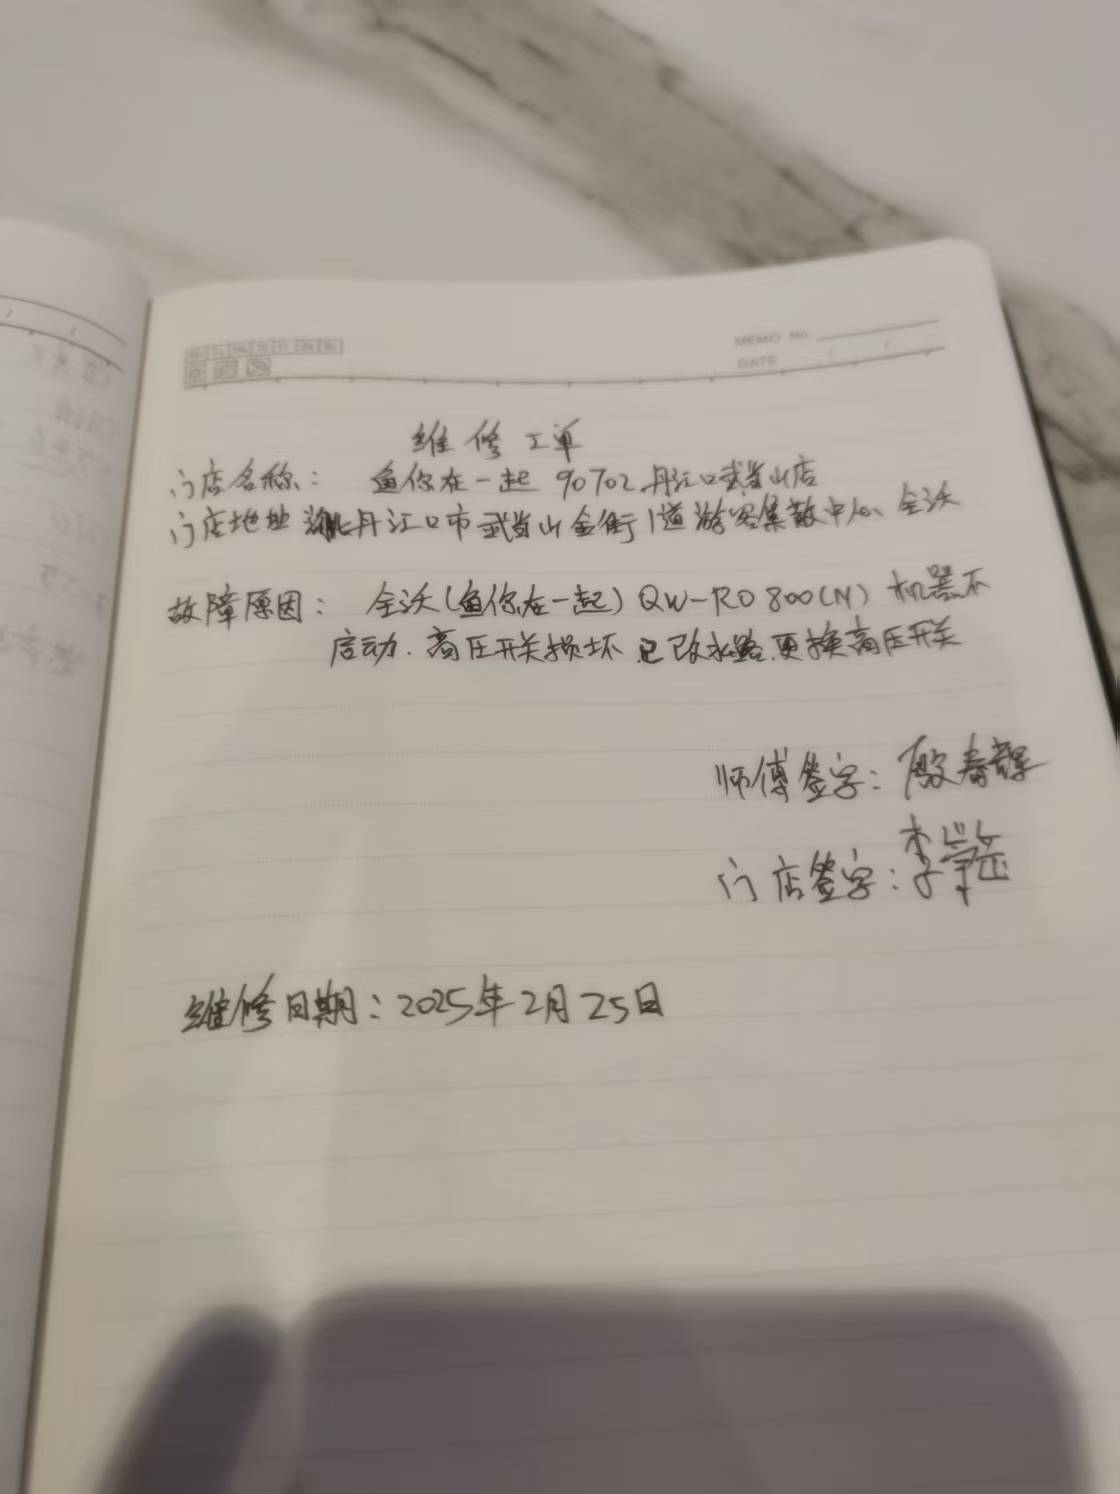 MEMO No.
DATE
维修工单
门店名称： 鱼你在一起 90702 丹江口武当山店
门店地址 湖北丹江口市武当山金街1道游客集散中心、全沃
故障原因： 全沃(鱼你在一起) QW-RO 800(N) 机器不
启动. 高压开关损坏 已改水路.更换高压开关
师傅签字：殷春辉
门店签字：李
维修日期：2025年2月25日